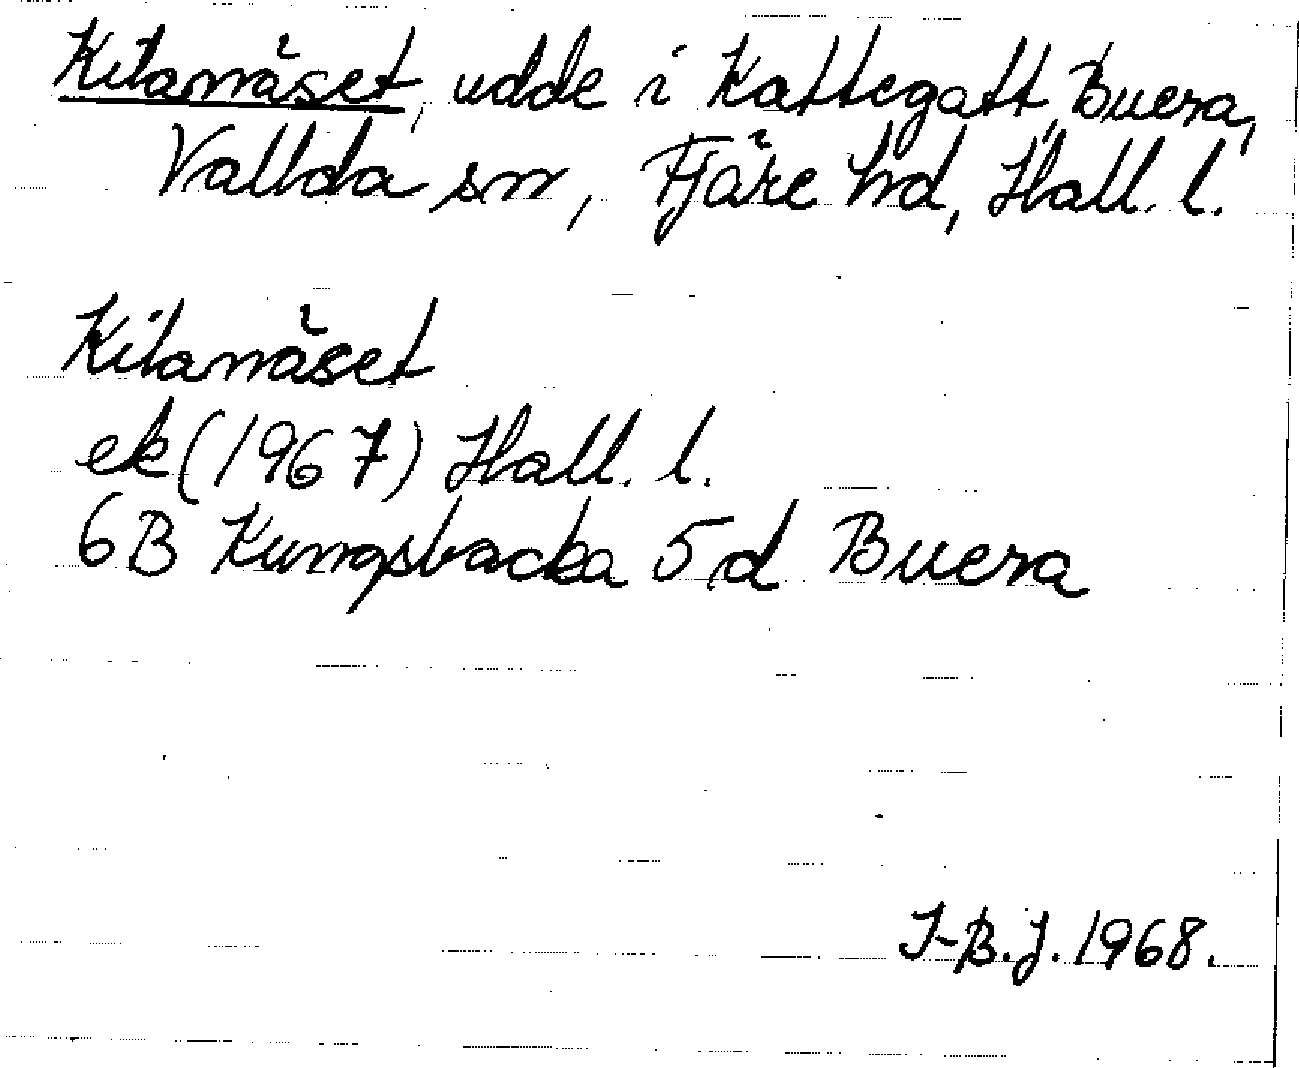 Kitanäset, udde i Kattegatt, Buera,
Vallda sn, Fjäre hd, Hall. l.
Kitanäset
ek (1967) Hall. l.
6B Kungsbacka 5d Buera
I-B.J. 1968.